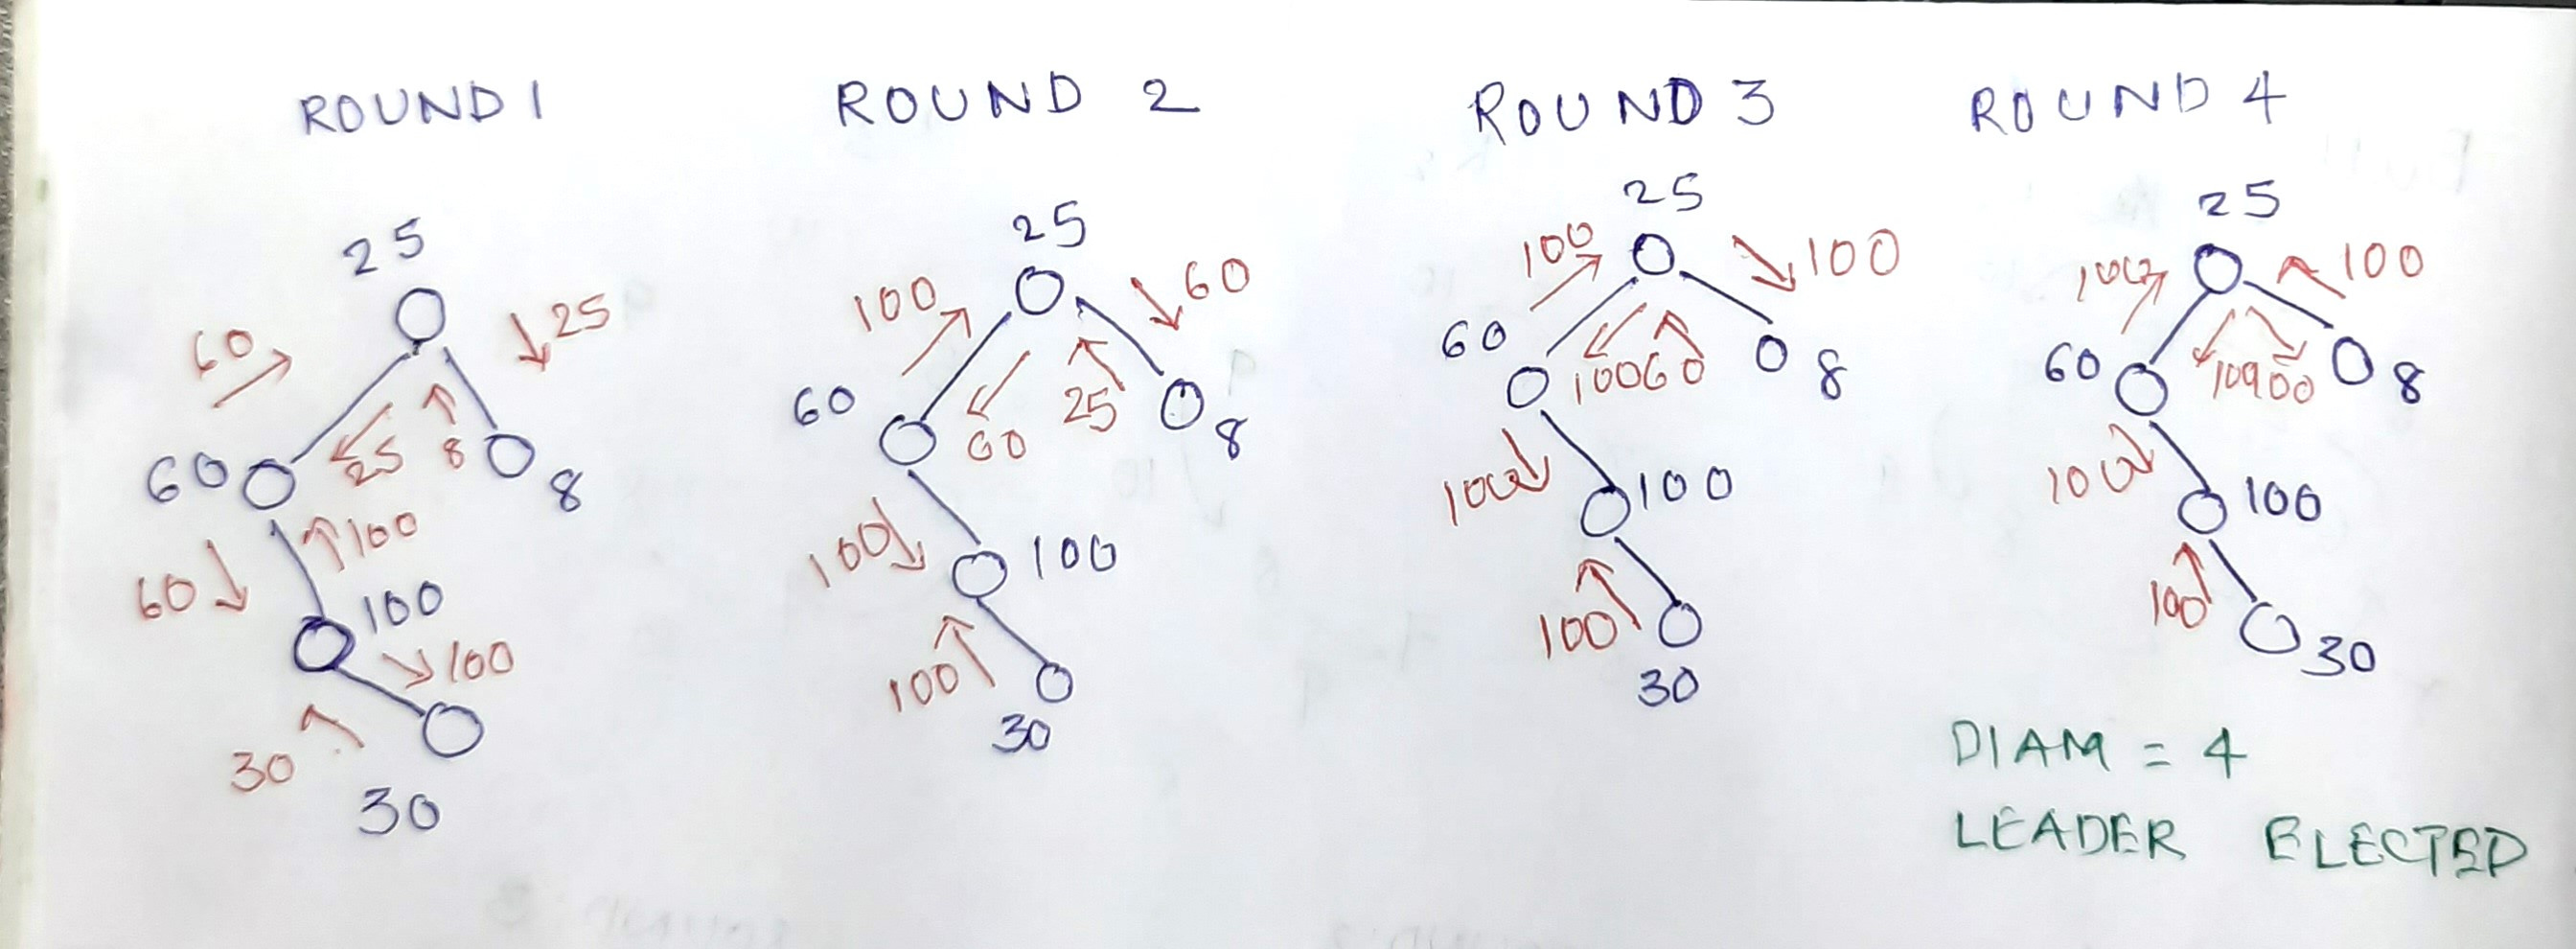 ROUND 1
25
60
25
25
8
60
8
100
60
100
100
30
30
ROUND 2
25
100
60
60
60
25
8
100
100
100
30
ROUND 3
25
100
100
60
100 60
8
100
100
100
30
ROUND 4
25
100
100
60
100
8
100
100
100
30
DIAM = 4
LEADER ELECTED